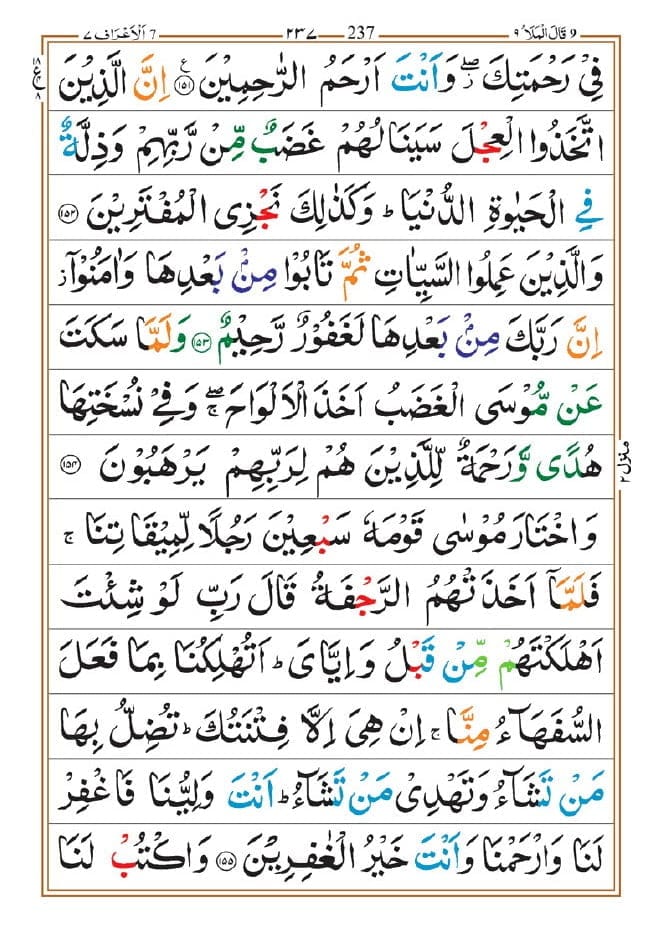 ٩ قَالَ الْمَلَاُ ٩ 237 ٢٣٧ 7 اَلْاَعْرَاف ٧
فِيْ رَحْمَتِكَ ۖ وَاَنْتَ اَرْحَمُ الرّٰحِمِيْنَ ﴿١٥١﴾ اِنَّ الَّذِيْنَ
اتَّخَذُوا الْعِجْلَ سَيَنَالُهُمْ غَضَبٌ مِّنْ رَّبِّهِمْ وَذِلَّةٌ
فِي الْحَيٰوةِ الدُّنْيَا ؕ وَكَذٰلِكَ نَجْزِى الْمُفْتَرِيْنَ ﴿١٥٢﴾
وَالَّذِيْنَ عَمِلُوا السَّيِّاٰتِ ثُمَّ تَابُوْا مِنْۢ بَعْدِهَا وَاٰمَنُوْۤا ز
اِنَّ رَبَّكَ مِنْۢ بَعْدِهَا لَغَفُوْرٌ رَّحِيْمٌ ﴿١٥٣﴾ وَلَمَّا سَكَتَ
عَنْ مُّوْسَى الْغَضَبُ اَخَذَ الْاَلْوَاحَ ۖ وَفِيْ نُسْخَتِهَا
هُدًى وَّرَحْمَةٌ لِّلَّذِيْنَ هُمْ لِرَبِّهِمْ يَرْهَبُوْنَ ﴿١٥٤﴾
وَاخْتَارَ مُوْسٰى قَوْمَهٗ سَبْعِيْنَ رَجُلًا لِّمِيْقَاتِنَا ۚ
فَلَمَّاۤ اَخَذَتْهُمُ الرَّجْفَةُ قَالَ رَبِّ لَوْ شِئْتَ
اَهْلَكْتَهُمْ مِّنْ قَبْلُ وَاِيَّايَ ؕ اَتُهْلِكُنَا بِمَا فَعَلَ
السُّفَهَآءُ مِنَّا ۚ اِنْ هِيَ اِلَّا فِتْنَتُكَ ؕ تُضِلُّ بِهَا
مَنْ تَشَآءُ وَتَهْدِىْ مَنْ تَشَآءُ ؕ اَنْتَ وَلِيُّنَا فَاغْفِرْ
لَنَا وَارْحَمْنَا وَاَنْتَ خَيْرُ الْغٰفِرِيْنَ ﴿١٥٥﴾ وَاكْتُبْ لَنَا
منزل ٢